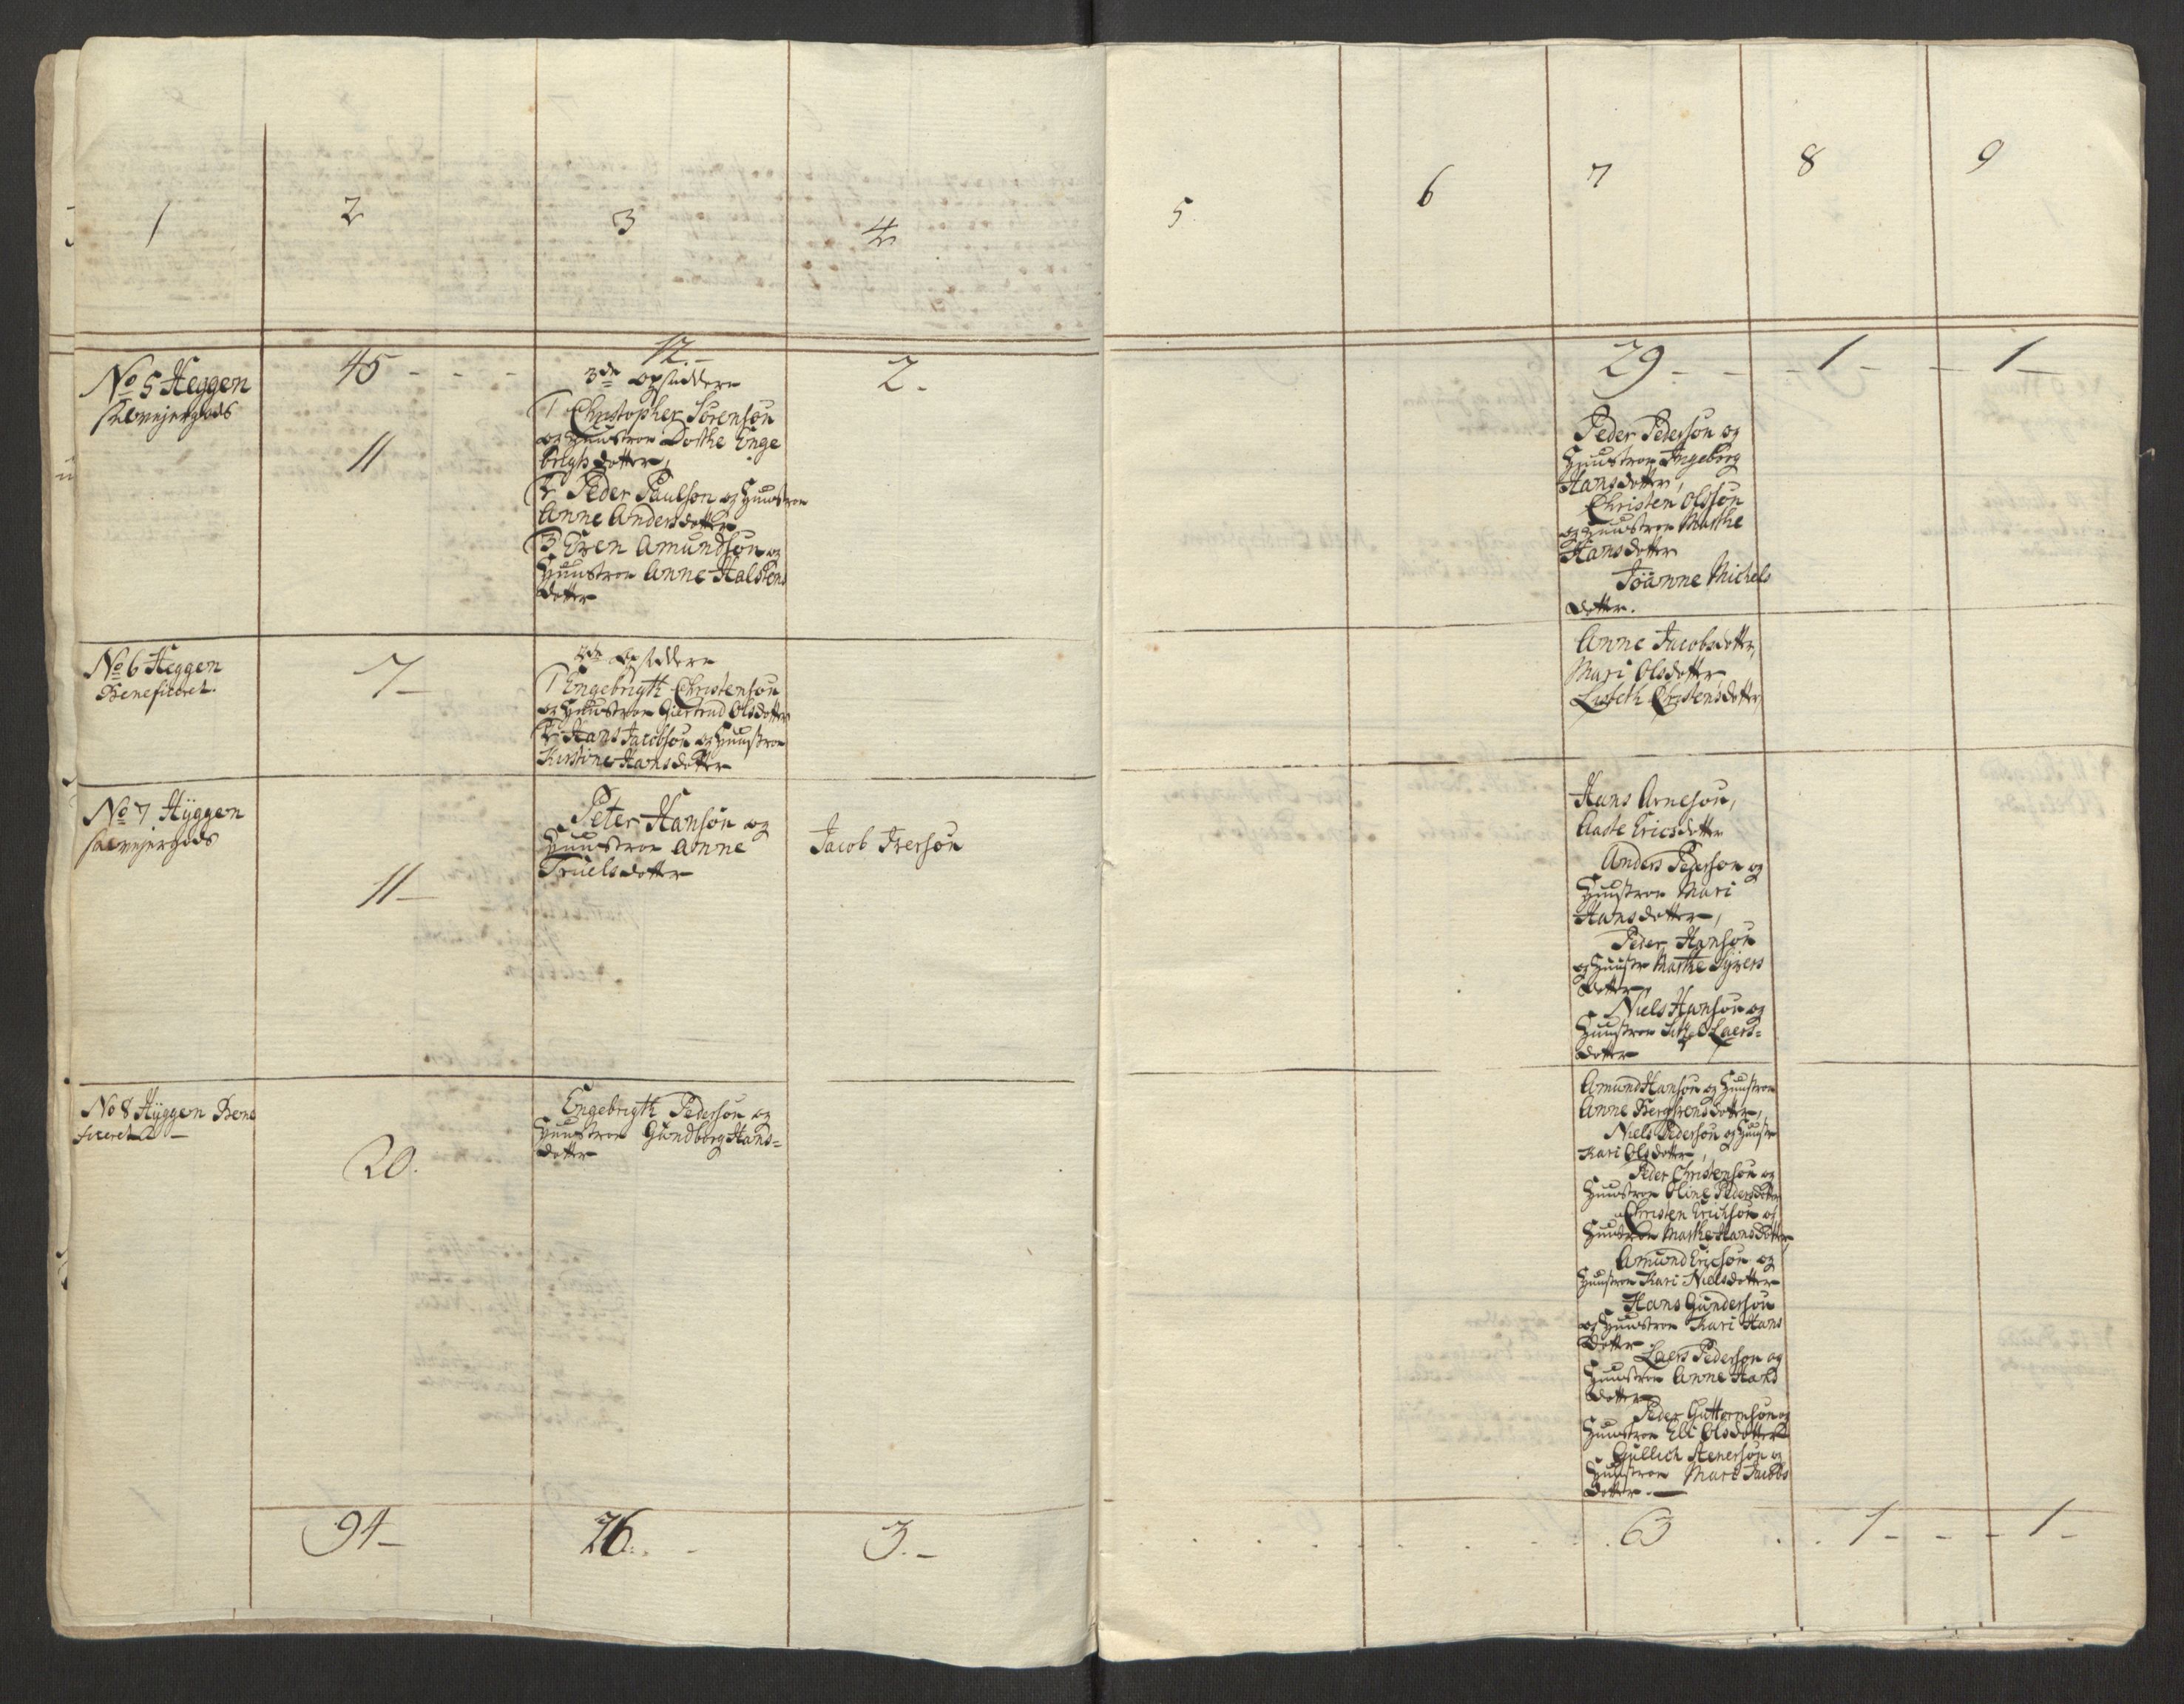 1
2
3
4
5
6
7
8
9
45 - - - 12.- 2- 29 - - - 1 - - - 1 -
No 5 Heggen
selvejergods
11
3de opsiddere
1 Christopher Sörensøn
og Huustroe Dorthe Enge
brigts dotter,
2 Peder Paulsøn og Huustroe
Anne Andersdotter
3 Even Amundsøn og
Huustroe Anne Halstens
dotter
Peder Pedersøn og
Huustroe Ingeborg
Hansdotter,
Christen Olssøn
og Huustroe Marthe
Hansdotter
Joänne Michels
dotter.
No 6 Heggen
Beneficeret.
7-
2de Opsiddere
1 Engebrigth Christensøn
og Huustroe Giertrud Olsdotter
2 Hans Jacobsøn og Huustroe
Kirstine Hansdotter
Anne Jacobsdotter,
Mari Olsdotter
Lisbeth Christensdotter,
No 7 Hÿggen
selvejergods
11-
Peter Hansøn og
Huustroe Anne
Truelsdotter
Jacob Iversøn
Hans Arnesøn,
Aaste Ericsdotter
Anders Pedersøn og
Huustroe Mari
Hansdotter,
Peder Hansøn
og Huustr Marthe Syvers
dotter,
Niels Hansøn og
Huustroe Laers-
dotter
No 8 Hÿggen Bene
ficeret
20.
Engebrigth Pedersøn og
Huustroe Gundborg Hans-
dotter
Amund Hansøn og Huustroe
Anne Bergsvensdotter,
Niels Pedersøn og Huustr
Kari Olsdotter,
Peder Christensøn og
Huustroe Oline Pedersdotter
Christen Erichsøn og
Huustroe Marthe Hansdotter
Amund Ericsøn og
Huustroe Kari Nielsdotter
Hans Gundersøn
og Huustroe Kari Hans
dotter
Laers Pedersøn og
Huustroe Anne Hans
dotter
Peder Guttormsøn og
Huustroe Eli Olsdotter
Gullich Stenersøn og
Huustroe Mari Jacobs
dotter. -
94- 26. - 3.- 63 1 - - - 1 -